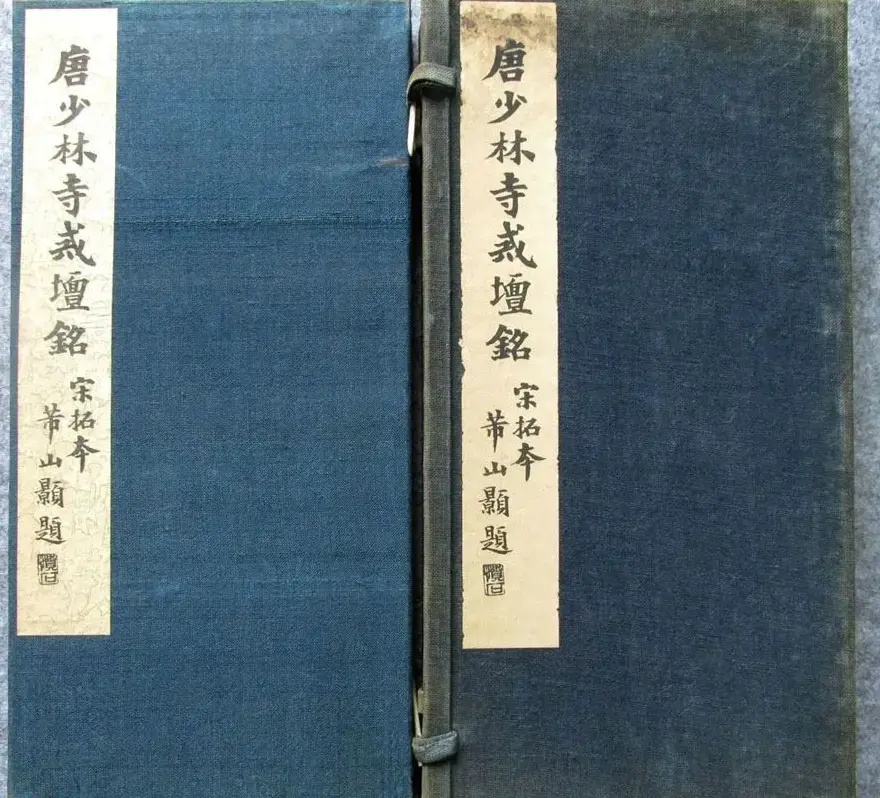 唐少林寺戒壇銘
宋拓本
芾山顥題
唐少林寺戒壇銘
宋拓本
芾山顥題